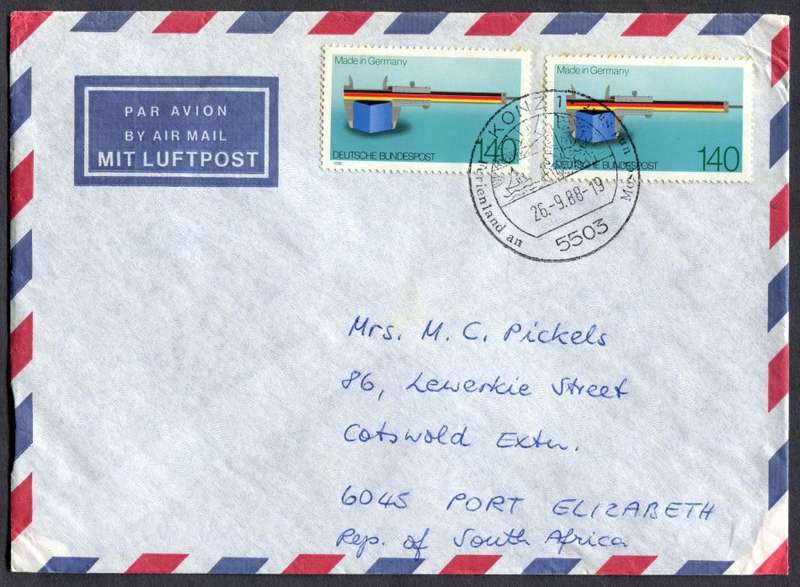 Made in Germany
DEUTSCHE BUNDESPOST
140
Made in Germany
DEUTSCHE BUNDESPOST
140
PAR AVION
BY AIR MAIL
MIT LUFTPOST
KONZ
1
26.-9.88-19
5503
Ferienland an
Mrs. M. C. Pickels
86, Lewerkie Street
Cotswold Extn.
6045 PORT ELIZABETH
Rep. of South Africa